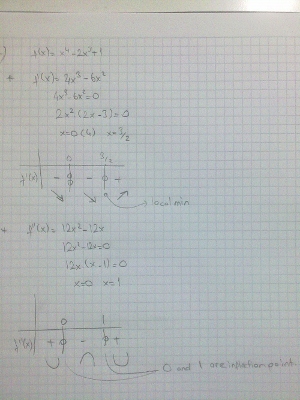 f(x) = x⁴ - 2x³ + 1
* f'(x) = 4x³ - 6x²
4x³ - 6x² = 0
2x² (2x - 3) = 0
x = 0 (4) x = 3/2
0 3/2
f'(x) - - +
local min
* f''(x) = 12x² - 12x
12x² - 12x = 0
12x (x - 1) = 0
x = 0 x = 1
0 1
f''(x) + - +
0 and 1 are inflection point.